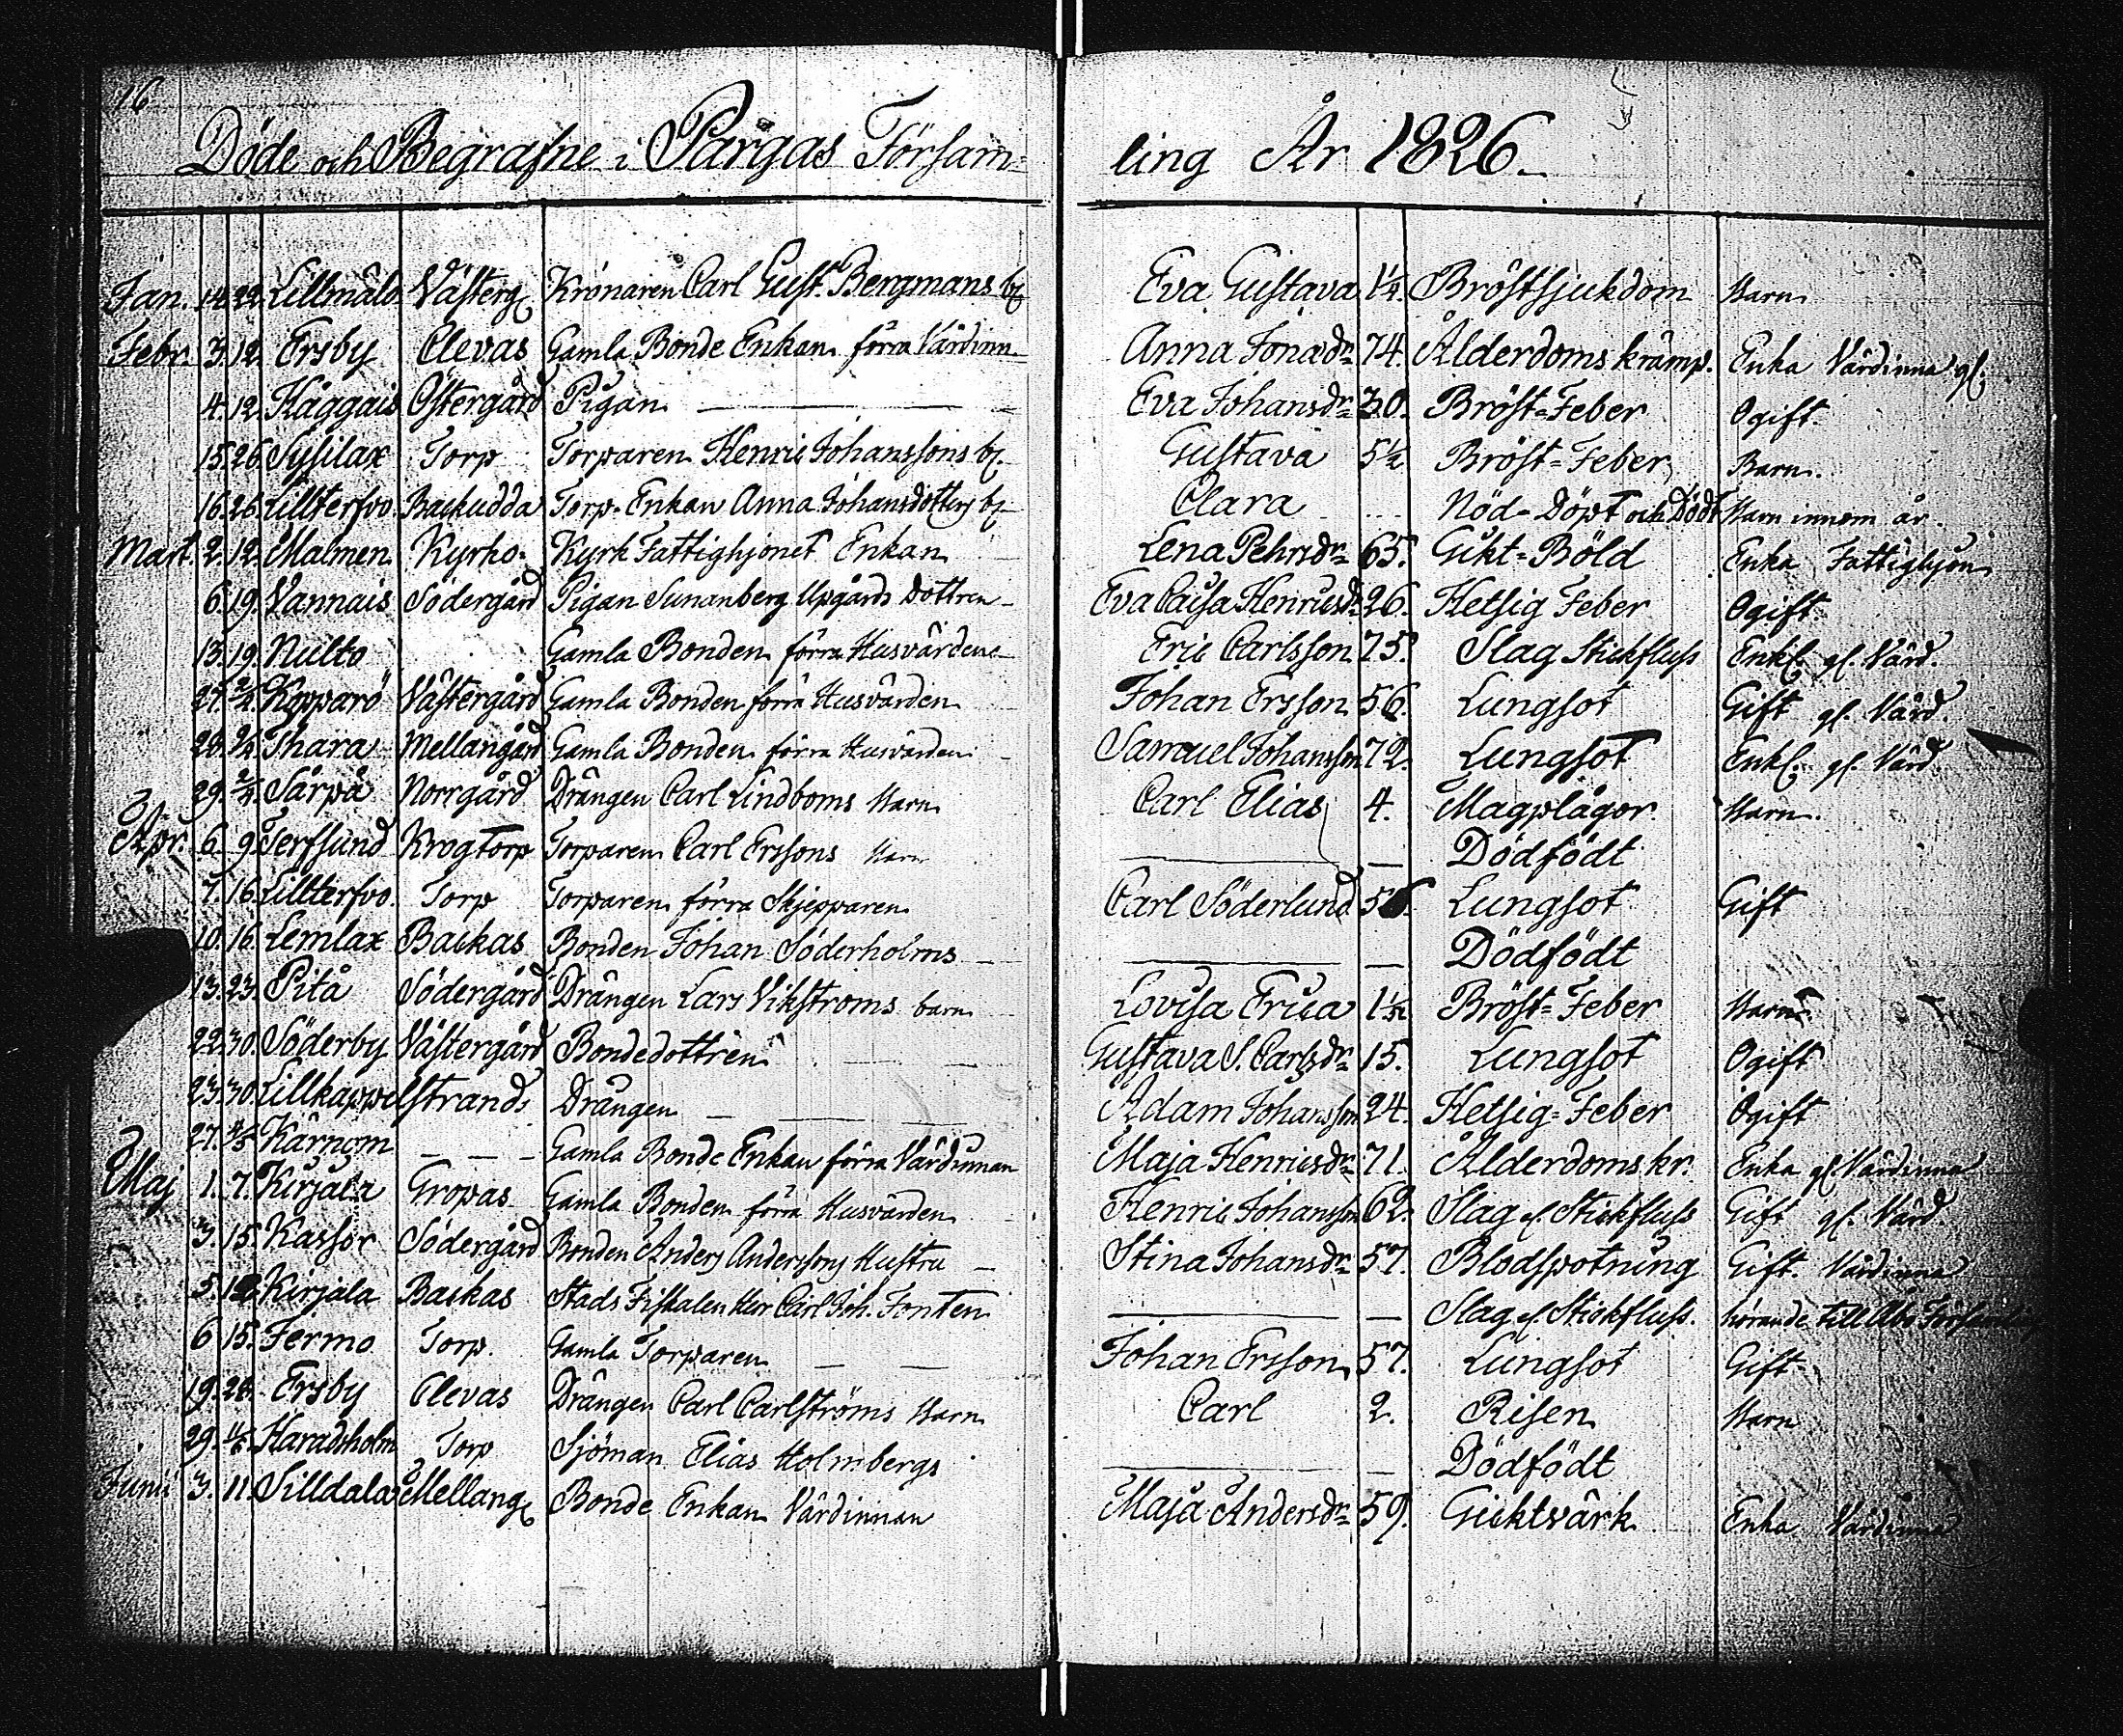 16
Döde och Begrafne i Pargas Försam- ling År 1826.
Jan. 14. 22. Lillmälö Västerg Krönaren Carl Gust. Bergmans b. Eva Gustava 1½. Bröstsjukdom Barn
Febr. 3. 12. Ersby Clevas Gamla Bonde Enkan förra Värdinn. Anna Jonasdr 74. Ålderdoms krämp. Enka Värdinna gl.
4. 12. Haggais Östergård Pigan Eva Johansdr 30. Bröst-Feber Ogift.
15. 26. Sysilax Torp Torparen Henric Johanssons b. Gustava 5½ Bröst-Feber Barn.
16. 26. Lillterfvo. Backudda Torp. Enkan Anna Johansdotters b. Clara Nöd-Döpt och Dödt Barn innom år.
Mart. 2. 12. Malmen Kyrko- Kyrk Fattighjonet Enkan Lena Pehrsdr 65. Gikt-Böld Enka Fattighjon
6. 19. Vannais Södergård Pigan Sunnanberg Upgårds Dottren Eva Caisa Henricsdr 26. Hetsig Feber Ogift.
13. 19. Nulto Gamla Bonden förra Husvärden Eric Carlsson 75. Slag Stickfluss Enkl. gl. Värd.
27. 2/4 Kopparö Västergård Gamla Bonden förra Husvärden Johan Ersson 56. Lungsot Gift gl. Värd.
28. 2/4 Ihara Mellangård Gamla Bonden förra Husvärden Samuel Johansson 72. Lungsot Enkl. gl. Värd
29. 2/4. Särpä Norrgård Drängen Carl Lindboms Barn Carl Elias 4. Magplågor Barn.
Apr. 6. 9. Terfsund Krogtorp Torparen Carl Erssons Barn — Dödfödt
7. 16. Lillterfvo. Torp Torparen förra Skjepparen Carl Söderlund Lungsot Gift
10. 16. Lemlax Backas Bonden Johan Söderholms — Dödfödt
13. 23. Pitå Södergård Drängen Lars Vikströms barn Lovisa Erica Bröst-Feber Barn
22. 30. Söderby Västergård Bondedottren Gustava S. Carlsdr 15. Lungsot Ogift
23. 30. Lillkappelstrands Drängen Adam Johansson 24. Hetsig-Feber Ogift
27. 4/5 Kärnom — Gamla Bonde Enkan förra Värdinnan Maja Henricsdr 71. Ålderdoms kr. Enka gl. Värdinna
Maj 1. 7. Kirjala Gropas Gamla Bonden förra Husvärden Henric Johansson 62. Slag el. Stickfluss Gift gl. Värd.
3. 15. Kassor Södergård Bonden Anders Anderssons Hustru Stina Johansdr 57. Blodspotning Gift. Värdinna
5. Kirjala Backas Stads Fiskalen Herr Carl Joh. Fonten — Slag el. Stickfluss. hörande till Åbo Församling
6 15. Jermo Torp. Gamla Torparen Johan Ersson 57. Lungsot Gift
19. 28. Ersby Clevas Drängen Carl Carlströms Barn Carl 2. Risen Barn
29. Haradsholm Torp Sjöman Elias Holmbergs — Dödfödt
Junii 3. 11. Silldala Mellang Bonde Enkan Värdinnan Maja Andersdr 59. Gicktvärk Enka Värdinna